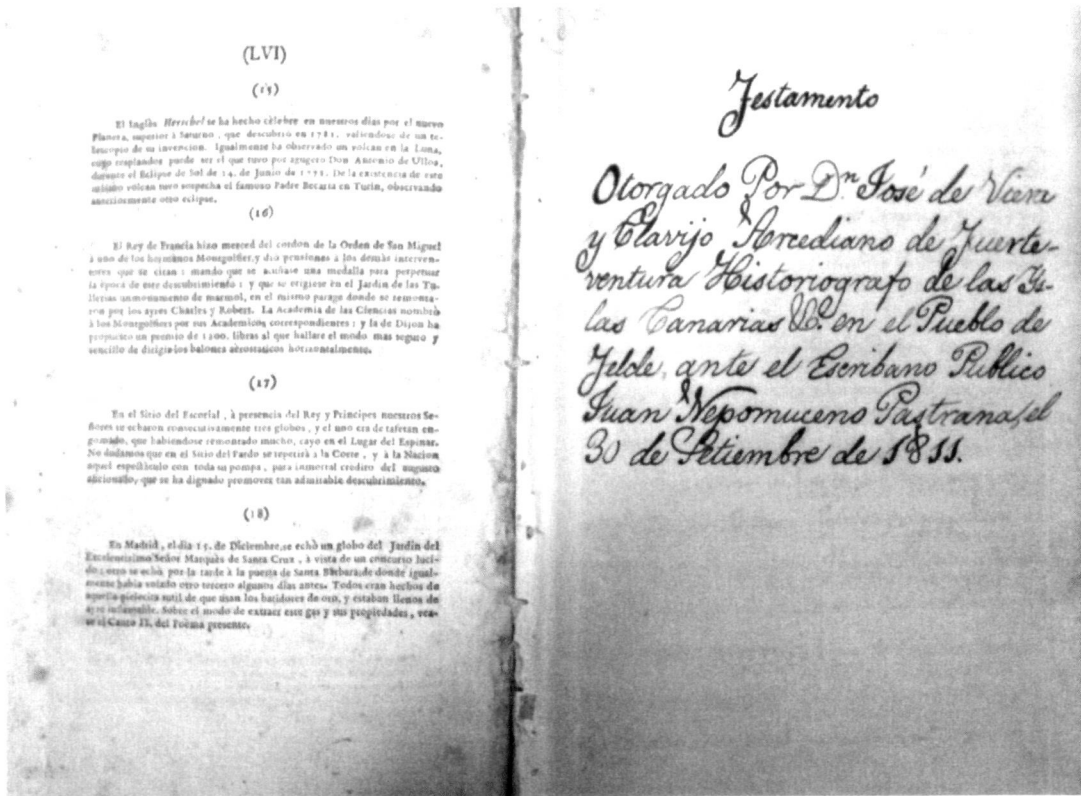 (LVI)
(15)
El Inglés Herschel se ha hecho célebre en nuestros dias por el nuevo
Planeta, superior à Saturno, que descubrió en 1781. valiendose de un te-
lescopio de su invencion. Igualmente ha observado un volcan en la Luna,
cuyo resplandor puede ser el que tuvo por agugero Don Antonio de Ulloa,
durante el Eclipse de Sol de 24. de Junio de 1778. De la existencia de este
mismo volcan tuvo sospecha el famoso Padre Becaria en Turin, observando
anteriormente otro eclipse.
(16)
El Rey de Francia hizo merced del cordon de la Orden de San Miguel
à uno de los hermanos Montgolfier, y dió pensiones à los demàs interven-
tores que se citan : mandó que se acuñase una medalla para perpetuar
la época de este descubrimiento ; y que se erigiese en el Jardin de las Tu-
llerias un monumento de marmol, en el mismo parage donde se remonta-
ron por los ayres Charles y Robert. La Academia de las Ciencias nombrò
à los Montgolfiers por sus Academicos correspondientes ; y la de Dijon ha
propuesto un premio de 1200. libras al que hallare el modo mas seguro y
sencillo de dirigir los balones aërostaticos horizontalmente.
(17)
En el Sitio del Escorial, à presencia del Rey y Principes nuestros Se-
ñores se echaron consecutivamente tres globos, y el uno era de tafetan en-
gomado, que habiendose remontado mucho, cayo en el Lugar del Espinar.
No dudamos que en el Sitio del Pardo se repetirà à la Corte, y à la Nacion
aquel espectàculo con toda su pompa, para inmortal crèdito del augusto
aficionado, que se ha dignado promover tan admirable descubrimiento.
(18)
En Madrid, el dia 15. de Diciembre, se echò un globo del Jardin del
Excelentisimo Señor Marquès de Santa Cruz, à vista de un concurso luci-
do ; otro se echò por la tarde à la puerta de Santa Bàrbara, de donde igual-
mente habia volado otro tercero algunos dias antes. Todos eran hechos de
aquella pielecita sutil de que usan los batidores de oro, y estaban llenos de
ayre inflamable. Sobre el modo de extraer este gas y sus propiedades, vea-
se el Canto II. del Poema presente.
Testamento
Otorgado Por Dn. José de Viera
y Clavijo Arcediano de Fuerte-
ventura Historiografo de las Is-
las Canarias &. en el Pueblo de
Telde, ante el Escribano Publico
Juan Nepomuceno Pastrana, el
30 de Setiembre de 1811.